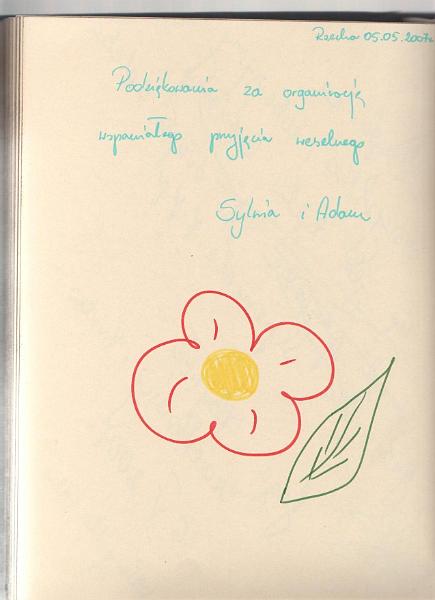 Rzecko 05.05.2007r.
Podziękowania za organizację
wspaniałego przyjęcia weselnego
Sylwia i Adam